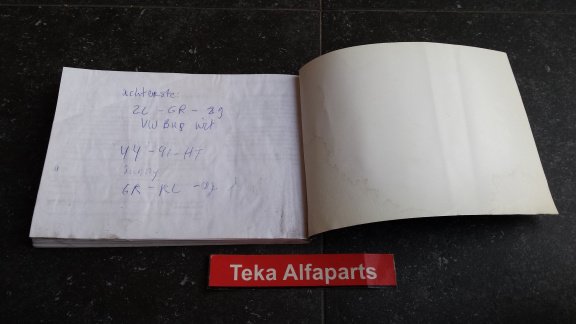 achterste:
ZL - GR - 29
VW Bus wit
YY - 91 - HT
GR - KL
Teka Alfaparts